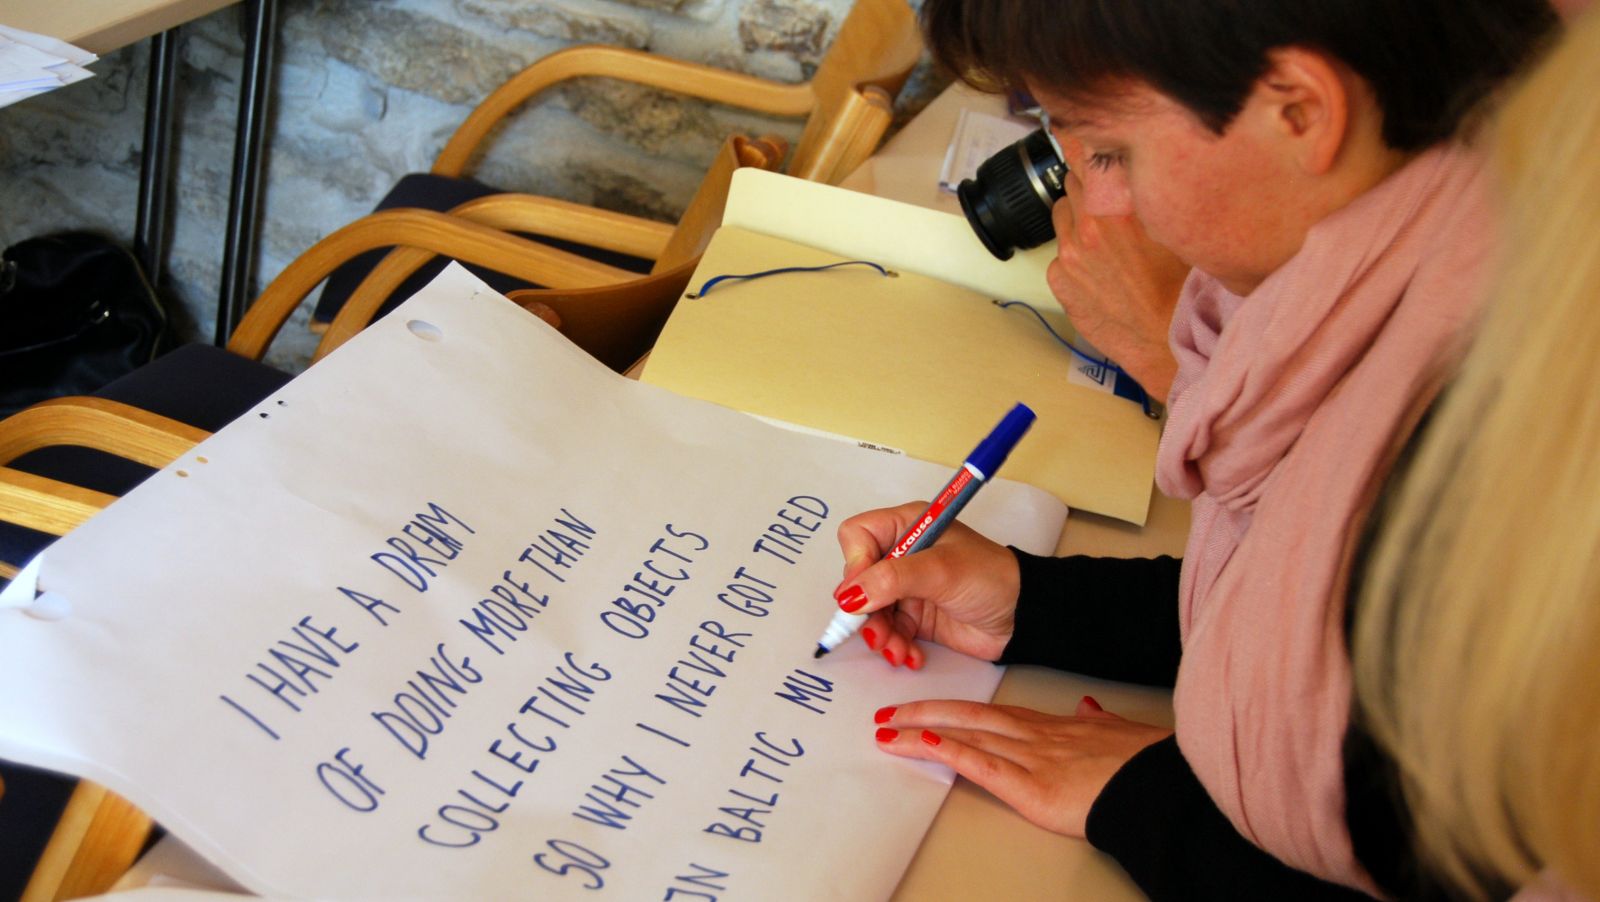 I HAVE A DREAM
OF DOING MORE THAN
COLLECTING OBJECTS
SO WHY I NEVER GOT TIRED
IN BALTIC MU
Krause
WHITE BOARD
MARKER